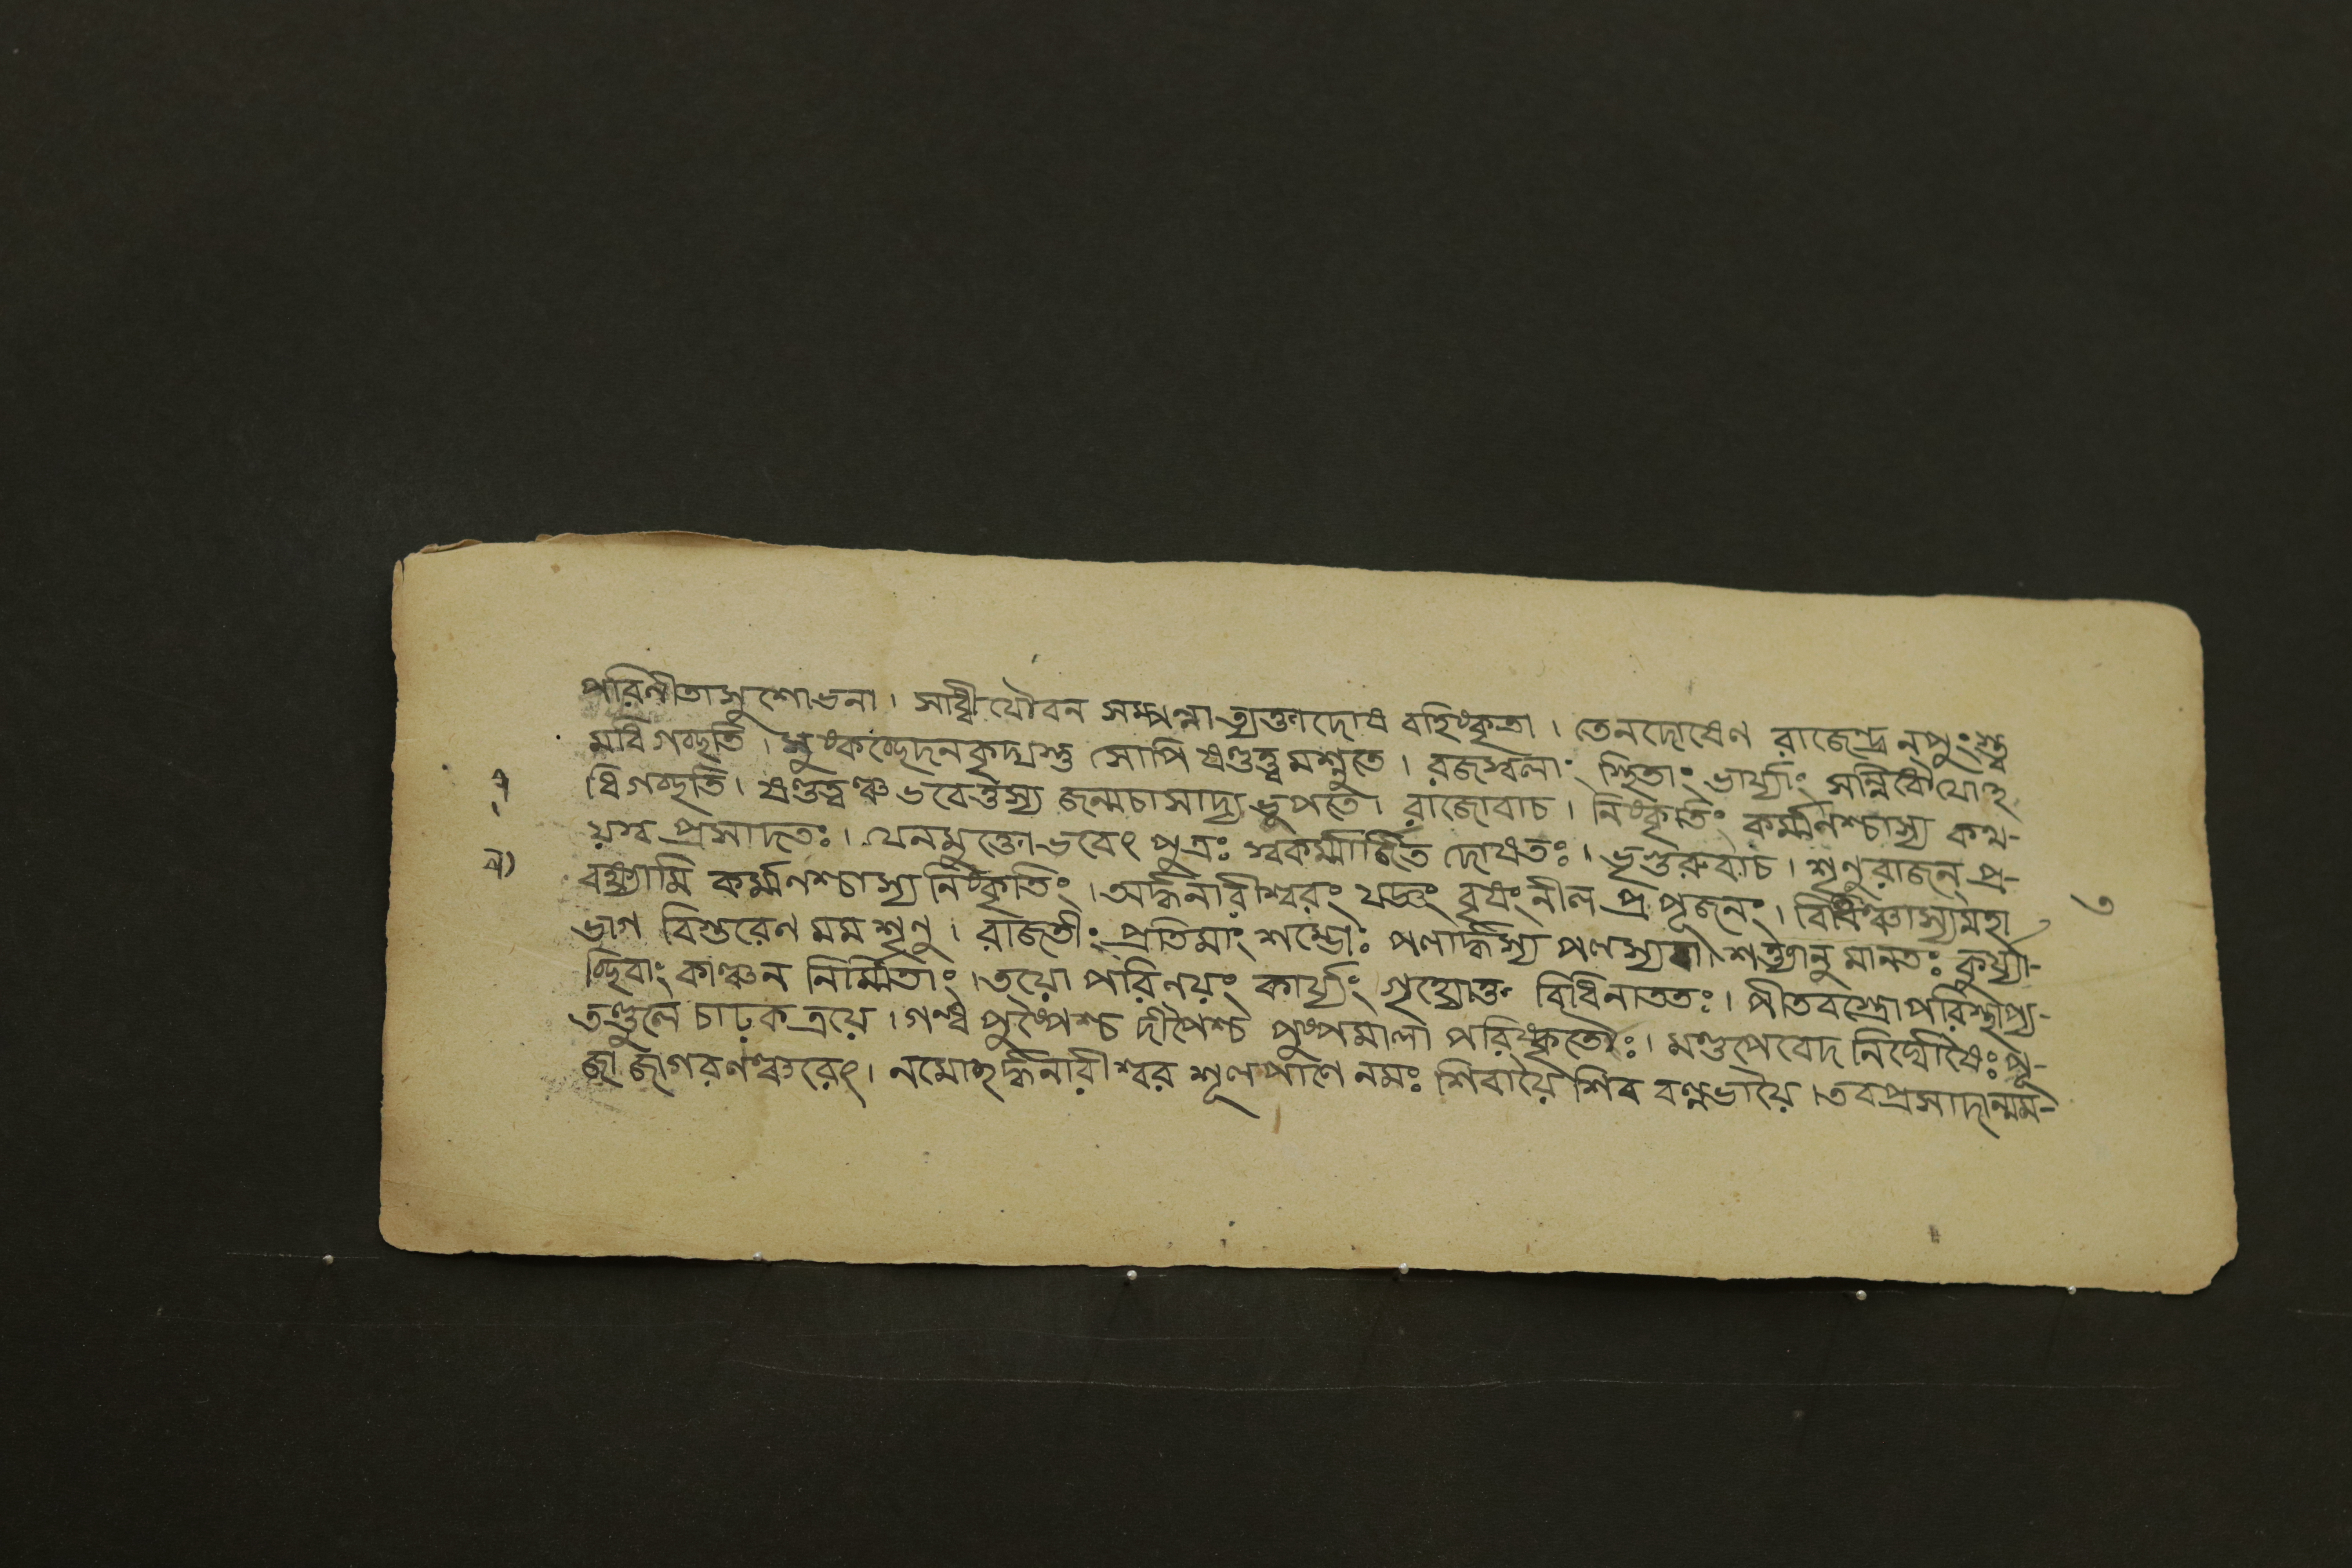 পরিণীতাসুশোভনা। সাধ্বীযৌবন সম্পন্না ত্যক্তাদোষ বহিষ্কৃতা। তেনদোষেণ রাজেন্দ্র নপুংস্ত্ব
মধিগচ্ছতি। মুষ্কচ্ছেদনকৃদ্যস্তু সোপি ষণ্ডত্ত্বমশ্নুতে। রজস্বলাং স্থিতাং ভার্য্যাং সন্নিধৌ যোঽ
ধিগচ্ছতি। ষণ্ডত্বঞ্চ ভবেত্তস্য জন্মচাসাদ্য ভূপতে। রাজোবাচ। নিষ্কৃতিং কর্ম্মণশ্চাস্য কথ-
য়স্ব প্রসাদতঃ। যেনমুক্তো ভবেৎ পুত্রঃ স্বকর্ম্মার্জিত দোষতঃ। ভৃগুরুবাচ। শৃণুরাজন্ প্র-
বক্ষ্যামি কর্ম্মণশ্চাস্য নিষ্কৃতিং। অর্দ্ধনারীশ্বরং যজ্ঞং বৃষং নীল প্রপূজনং। বিধিঞ্চাস্যমহা
ভাগ বিস্তরেণ মম শৃণু। রাজতীং প্রতিমাং শম্ভোঃ পলার্দ্ধস্য পলস্যবা। শক্ত্যানু মানতঃ কুর্য্যা-
চ্ছিবাং কাঞ্চন নির্ম্মিতাং। তয়ো পরিণয়ং কার্য্যং গৃহ্যোক্ত বিধিনাততঃ। পীতবস্ত্রোপরিস্থাপ্য-
তণ্ডুলে চাঢ়ক ত্রয়ে। গন্ধ পুষ্পৈশ্চ দীপৈশ্চ পুষ্পমালা পরিষ্কৃতৌঃ। মণ্ডপেবেদ নির্ঘোষৈঃ পূ-
জা জাগরণঞ্চরেৎ। নমোঽর্দ্ধনারীশ্বর শূলপাণে নমঃ শিবায়ৈ শিব বল্লভায়ৈ। তবপ্রসাদান্মম-